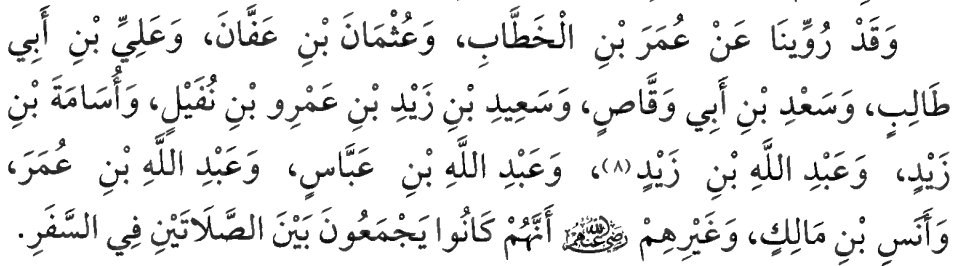 وَقَدْ رُوِّينَا عَنْ عُمَرَ بْنِ الْخَطَّابِ، وَعُثْمَانَ بْنِ عَفَّانَ، وَعَلِيِّ بْنِ أَبِي
طَالِبٍ، وَسَعْدِ بْنِ أَبِي وَقَّاصٍ، وَسَعِيدِ بْنِ زَيْدِ بْنِ عَمْرِو بْنِ نُفَيْلٍ، وَأُسَامَةَ بْنِ
زَيْدٍ، وَعَبْدِ اللَّهِ بْنِ زَيْدٍ(٨)، وَعَبْدِ اللَّهِ بْنِ عَبَّاسٍ، وَعَبْدِ اللَّهِ بْنِ عُمَرَ،
وَأَنَسِ بْنِ مَالِكٍ، وَغَيْرِهِمْ رضي الله عنهم أَنَّهُمْ كَانُوا يَجْمَعُونَ بَيْنَ الصَّلَاتَيْنِ فِي السَّفَرِ.